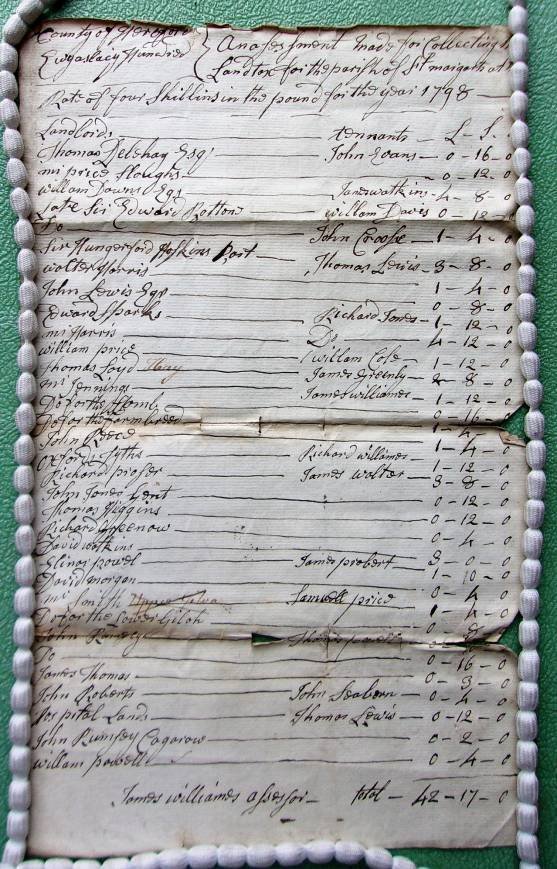 County of Hereford
Ewyaslacy Hundred
An assessment made for Collecting
Landtax for the parish of St margrets at
Rate of four Shillins in the pound for the year 1798
Landlords tennants L - S
Thomas Delehay Esqr John Evans - 0 - 16 - 0
mr price Sloughs 0 - 12 - 0
willam Downs Esq James watkins - 4 - 8 - 0
Late Sir Edward Botton willam Davis 0 - 12 - 0
Do John Crose - 1 - 4 - 0
Sir Hungerford Hoskins Part Thomas Lewis - 3 - 8 - 0
walter Harris 1 - 4 - 0
John Lewis Esqr 0 - 8 - 0
Edward Sparks Richard Jones - 1 - 12 - 0
mr Harris Do 4 - 12 - 0
william price willam Cole - 1 - 12 - 0
Thomas Loyd James Greenly 8 - 0
mr Jennings James williames 1 - 12 - 0
Do for the 0 - 16 - 0
Do for the 1 - 4
John Reece 1 - 4 - 0
Oxford Richard willames 1 - 12 - 0
Richard proser James wolter 3 - 8 - 0
John Jones Gent 0 - 12 - 0
Thomas Higgins 0 - 12 - 0
Richard Greenow 0 - 4 - 0
David watkins
Elinor powel James probert 3 - 0 - 0
David morgan 1 - 10 - 0
mr Smith Samwell price 0 - 4 - 0
Do for the Lower Gilah 1 - 4 - 0
John Rumsey 0 - 8
Do 0 - 16 - 0
James Thomas 0 - 3 - 0
John Roberts John Seabern 0 - 4 - 0
Hospital Lands Thomas Lewis 0 - 12 - 0
John Rumsey Cagarow 0 - 2 - 0
willam powell 0 - 4 - 0
James williames assessor total - 42 - 17 - 0